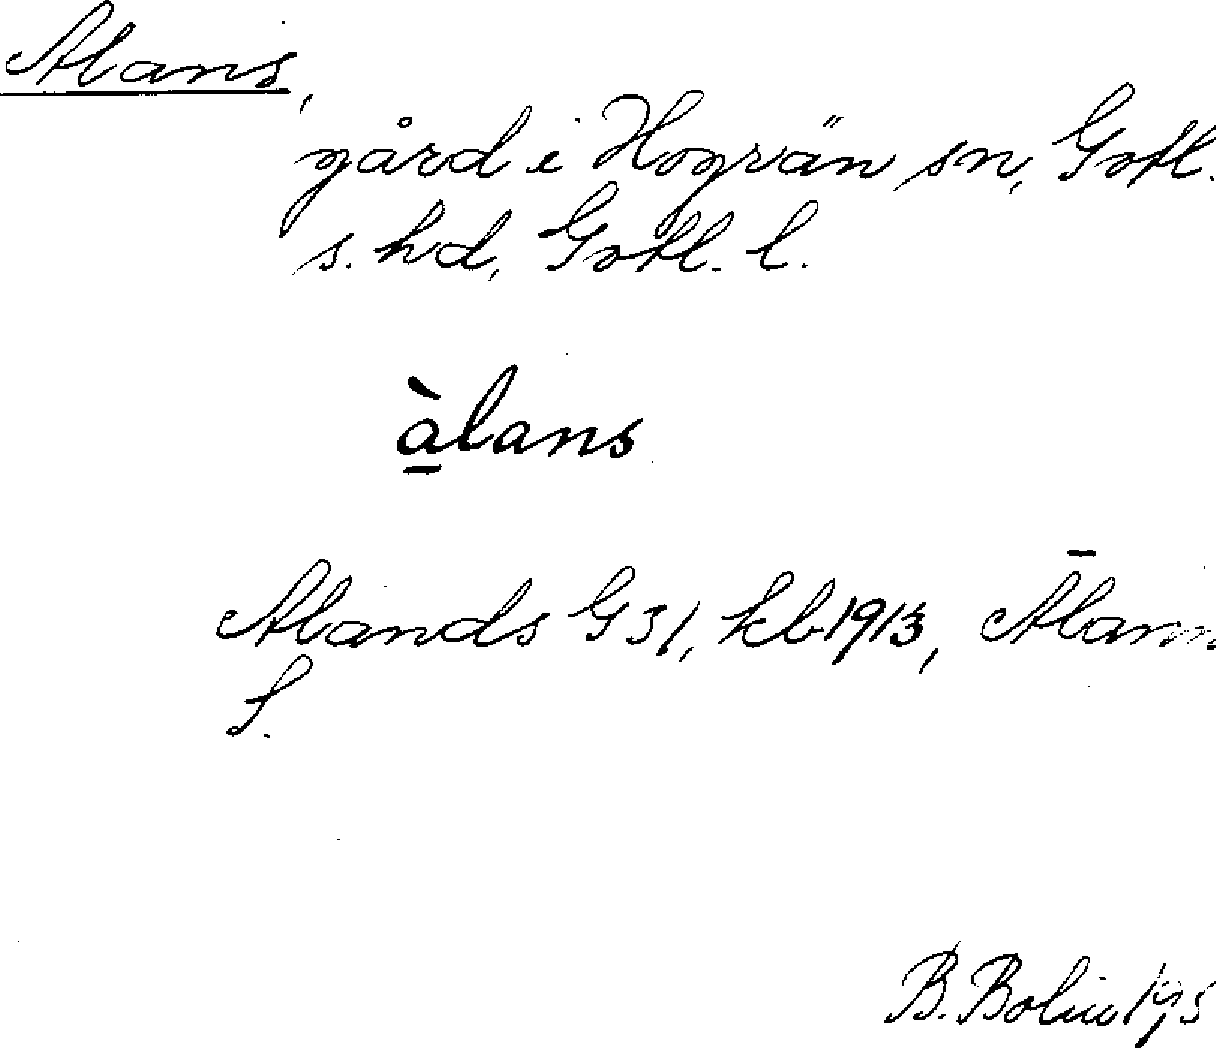 Alans,
gård i Hogrän sn, Gotl.
s. hd, Gotl. l.
à̱lans
Alands G 31, kb 1913, Ālann
S.
B. Bolin 195